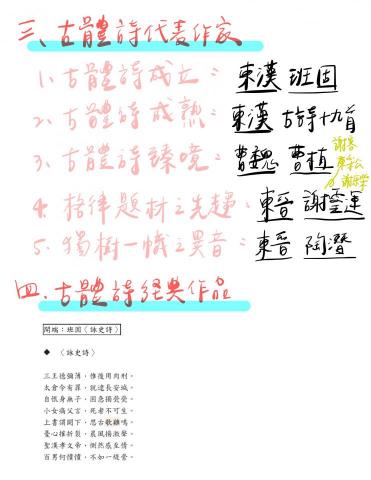 三、古體詩代表作家
1.古體詩成立：東漢 班固
2.古體詩成熟：東漢 古詩十九首
3.古體詩臻境：曹魏 曹植
謝客
康樂公
謝康樂
4.格律題材之先趨：東晉 謝靈運
5.獨樹一幟之異音：東晉 陶潛
四、古體詩經典作品
開端：班固〈詠史詩〉
◆ 〈詠史詩〉
三王德彌薄，惟後用肉刑。
太倉令有罪，就逮長安城。
自恨身無子，困急獨煢煢。
小女痛父言，死者不可生。
上書詣闕下，思古歌雞鳴。
憂心摧折裂，晨風揚激聲。
聖漢孝文帝，惻然感至情。
百男何憒憒，不如一緹縈。